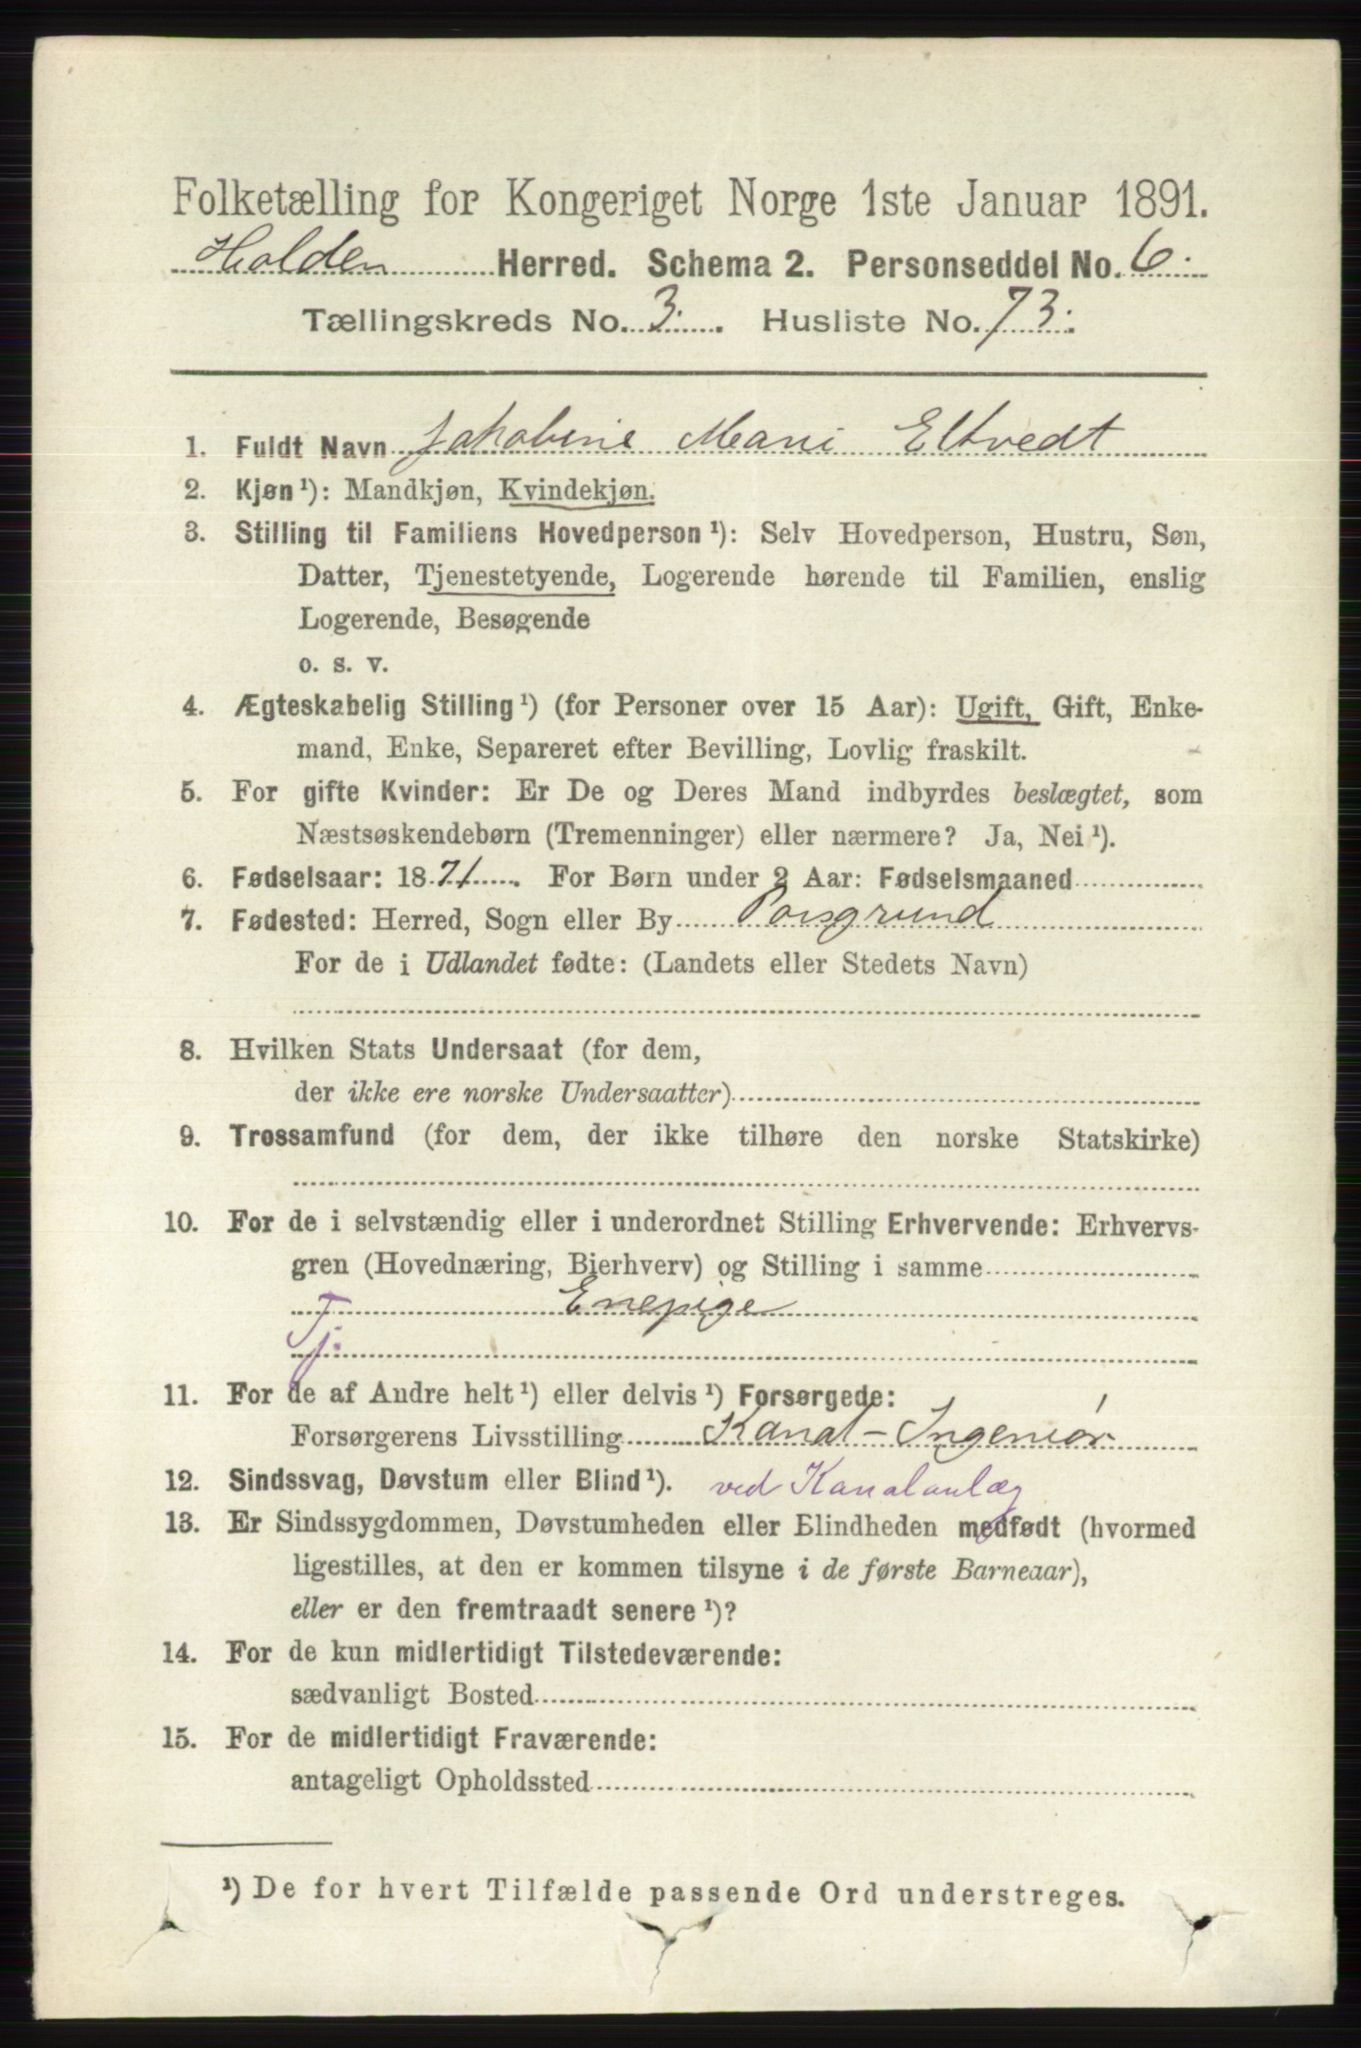 Folketælling for Kongeriget Norge 1ste Januar 1891.
Holden Herred. Schema 2. Personseddel No. 6.
Tællingskreds No. 3. Husliste No. 73.
1. Fuldt Navn Jakobine Marie Eltvedt
2. Kjøn ¹): Mandkjøn, Kvindekjøn.
3. Stilling til Familiens Hovedperson ¹): Selv Hovedperson, Hustru, Søn,
Datter, Tjenestetyende, Logerende hørende til Familien, enslig
Logerende, Besøgende
o. s. v.
4. Ægteskabelig Stilling ¹) (for Personer over 15 Aar): Ugift, Gift, Enke-
mand, Enke, Separeret efter Bevilling, Lovlig fraskilt.
5. For gifte Kvinder: Er De og Deres Mand indbyrdes beslægtet, som
Næstsøskendebørn (Tremenninger) eller nærmere? Ja, Nei ¹).
6. Fødselsaar: 1871. For Børn under 2 Aar: Fødselsmaaned
7. Fødested: Herred, Sogn eller By Porsgrund
For de i Udlandet fødte: (Landets eller Stedets Navn)
8. Hvilken Stats Undersaat (for dem,
der ikke ere norske Undersaatter)
9. Trossamfund (for dem, der ikke tilhøre den norske Statskirke)
10. For de i selvstændig eller i underordnet Stilling Erhvervende: Erhvervs-
gren (Hovednæring, Bierhverv) og Stilling i samme
Enepige
Tj.
11. For de af Andre helt ¹) eller delvis ¹) Forsørgede:
Forsørgerens Livsstilling Kanal-Ingeniør
12. Sindssvag, Døvstum eller Blind ¹). ved Kanalanlæg
13. Er Sindssygdommen, Døvstumheden eller Blindheden medfødt (hvormed
ligestilles, at den er kommen tilsyne i de første Barneaar),
eller er den fremtraadt senere ¹)?
14. For de kun midlertidigt Tilstedeværende:
sædvanligt Bosted
15. For de midlertidigt Fraværende:
antageligt Opholdssted
¹) De for hvert Tilfælde passende Ord understreges.